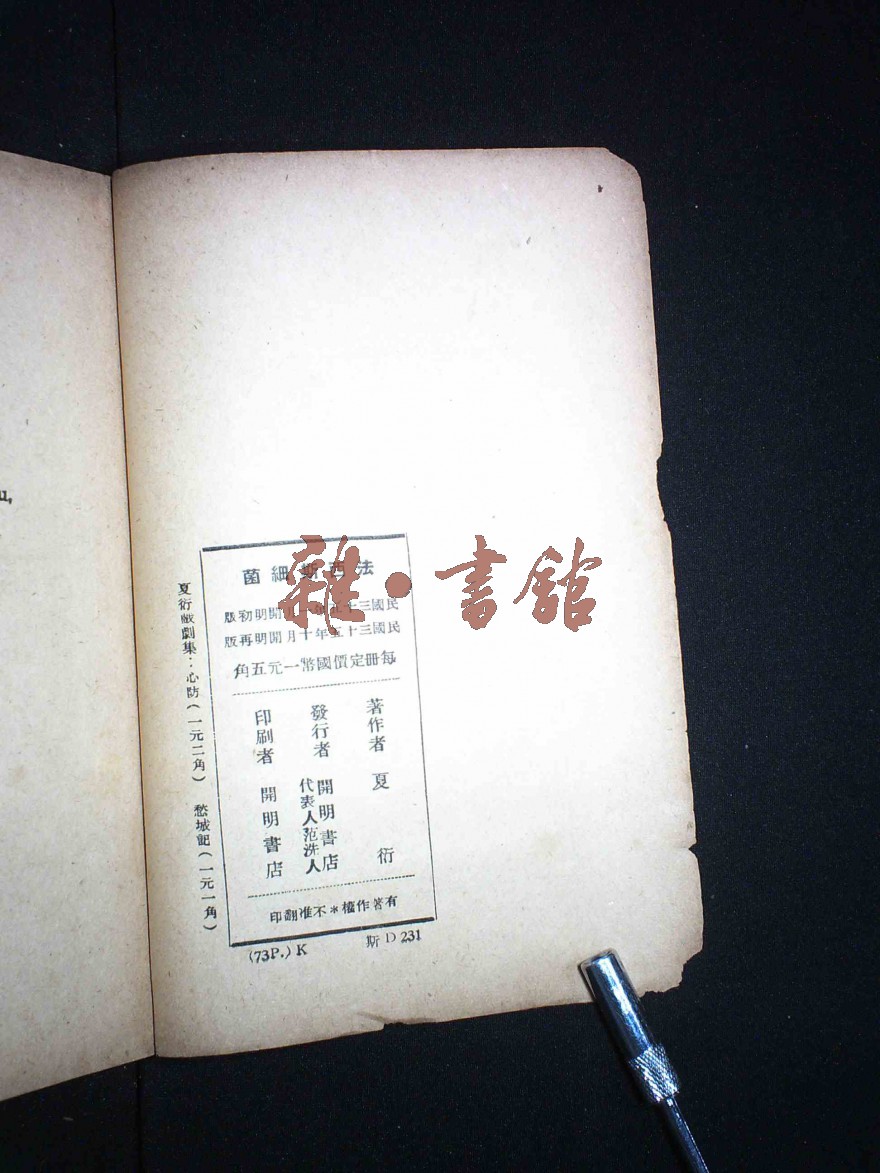 法西斯細菌
民國三十五年 月開明初版
民國三十五年十月開明再版
每冊定價國幣一元五角
著作者 夏衍
發行者 開明書店
代表人范洗人
印刷者 開明書店
有著作權*不准翻印
(73P.) K 斯 D 231
夏衍戲劇集：心防(一元二角) 愁城記(一元一角)
雜·書館